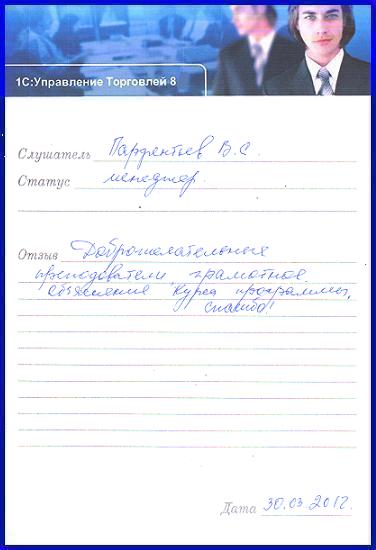 1С:Управление Торговлей 8
Слушатель Парфентьев В.С.
Статус менеджер.
Отзыв Доброжелательные
преподователи, грамотное
объяснение курса программы,
спасибо!
Дата 30.03.2012.